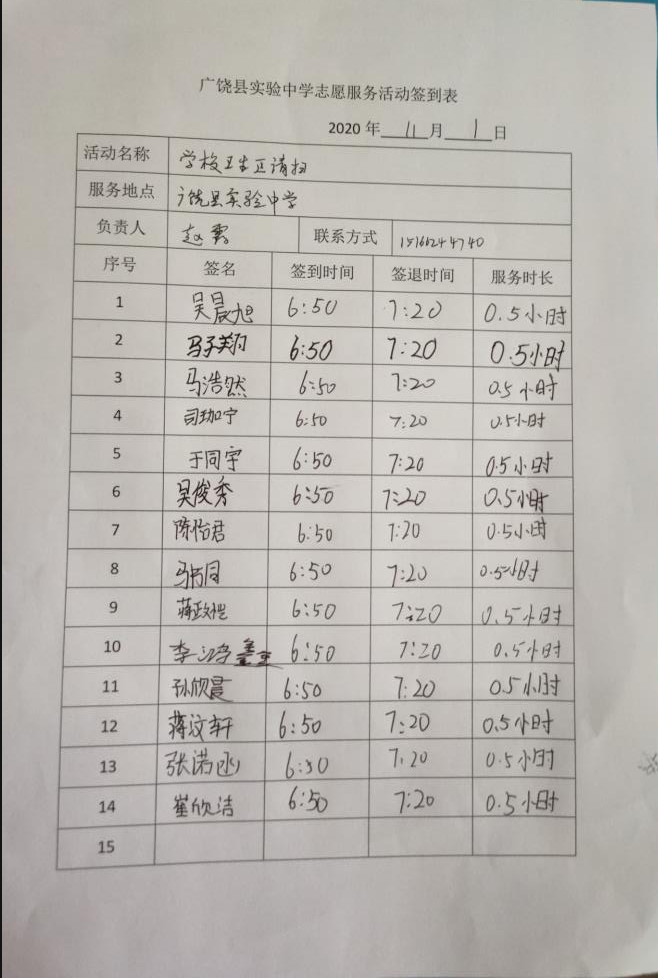 广饶县实验中学志愿服务活动签到表
2020 年 11 月 1 日
活动名称 学校卫生区清扫
服务地点 广饶县实验中学
负责人 赵霞 联系方式
序号 签名 签到时间 签退时间 服务时长
1 吴晨旭 6:50 7:20 0.5小时
2 马子翔 6:50 7:20 0.5小时
3 马浩然 6:50 7:20 0.5小时
4 司珈宁 6:50 7:20 0.5小时
5 于同宇 6:50 7:20 0.5小时
6 吴俊秀 6:50 7:20 0.5小时
7 陈怡君 6:50 7:20 0.5小时
8 6:50 7:20 0.5小时
9 蒋政恺 6:50 7:20 0.5小时
10 李鸿鑫 6:50 7:20 0.5小时
11 孙欣晨 6:50 7:20 0.5小时
12 蒋汶轩 6:50 7:20 0.5小时
13 张诺函 6:50 7:20 0.5小时
14 崔欣洁 6:50 7:20 0.5小时
15